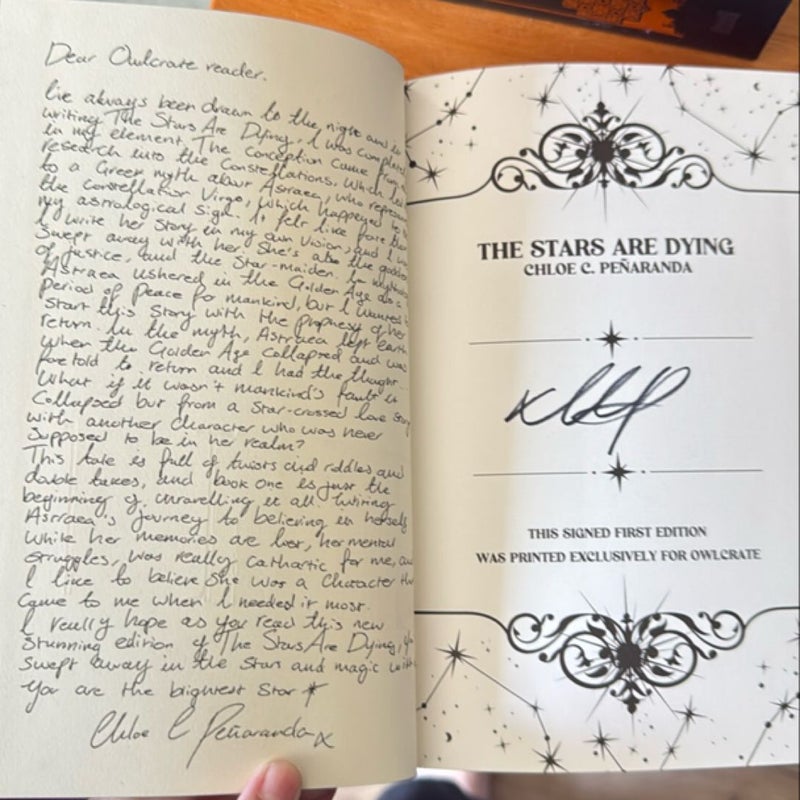 Dear Owlcrate reader.
I've always been drawn to the night and in
writing The Stars Are Dying, I was completely
in my element. The conception came from
research into the constellations, which led
to a Greek myth about Astraea, who represents
the constellation Virgo, which happened to be
my astrological sign. It felt like fate that
I write her story in my own vision, and I was
swept away with her. She's also the goddess
of justice, and the star-maiden. In
Astraea ushered in the Golden Age as a
period of peace for mankind, but I wanted to
start this story with the prophesy of her
return. In the myth, Astraea left earth
when the Golden Age collapsed and was
foretold to return and I had the thought..
What if it wasn't mankind's fault it
collapsed but from a star-crossed love story
with another character who was never
supposed to be in her realm?
This tale is full of twists and riddles and
double takes, and book one is just the
beginning of unravelling it all. Writing
Astraea's journey to believing in herself
while her memories are lost, her mental
struggles, was really cathartic for me, and
I like to believe she was a character that
came to me when I needed it most.
I really hope as you read this new
stunning edition of The Stars Are Dying, you
swept away in the stars and magic with
You are the brightest star
Chloe C Peñaranda x
THE STARS ARE DYING
CHLOE C. PEÑARANDA
THIS SIGNED FIRST EDITION
WAS PRINTED EXCLUSIVELY FOR OWLCRATE